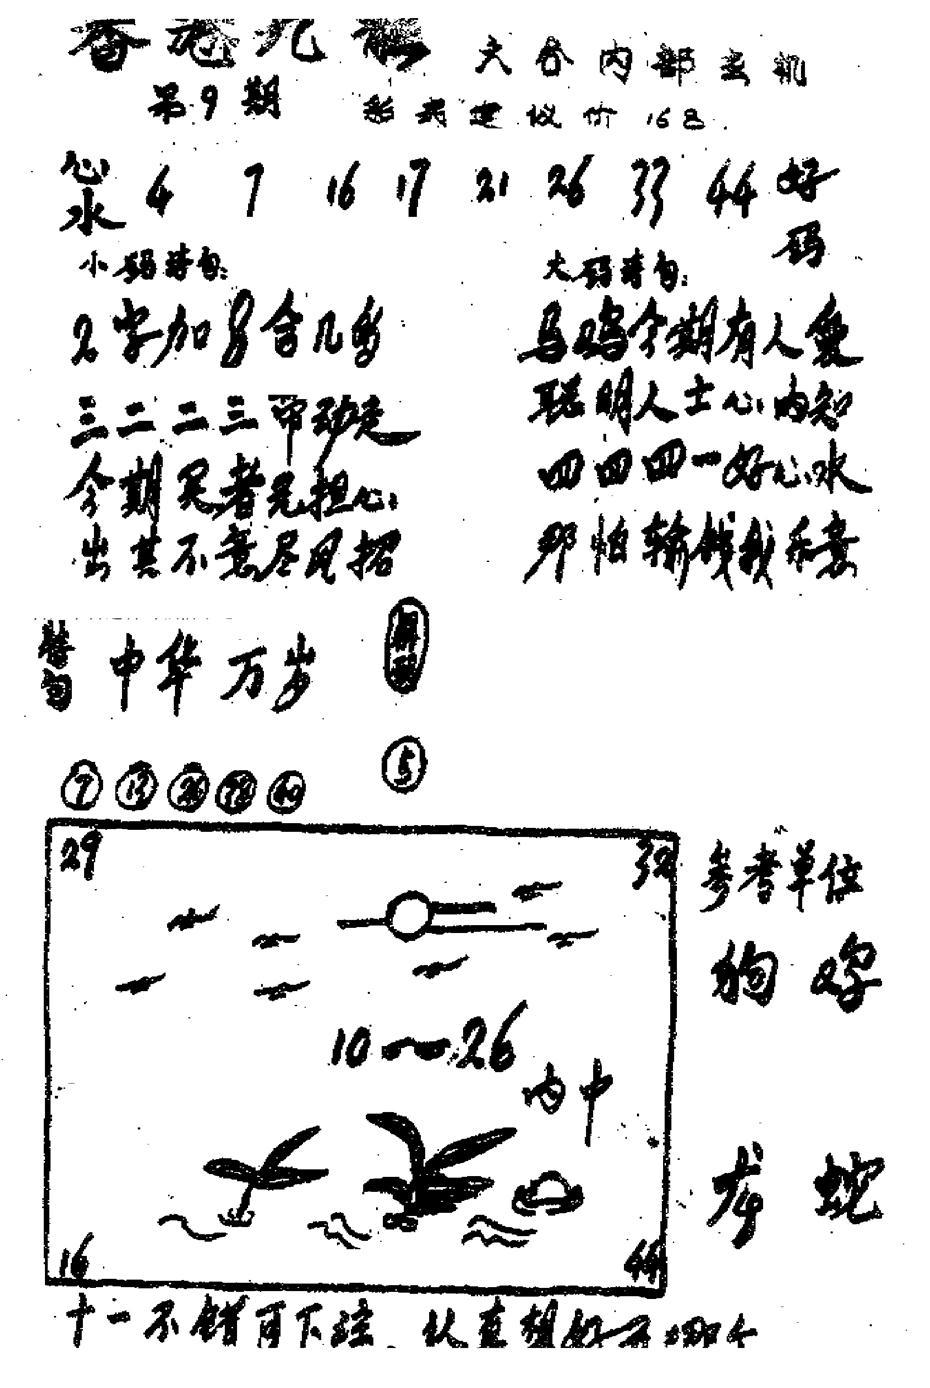 香港九龍 大谷内部玄机
第9期 彩民建议价168
心水 4 7 16 17 21 26 33 44 好码
小码诗句: 大码诗句:
2字加8合几的
三二二三中动走
今期 者 担心
出其不意尽风招
今期有人
聪明人士心内知
四四四一好心水
那怕输钱我乐意
中华万岁
5
7 26 40
29 32
10～26
内中
16 44
参考单位
龙 蛇
十一不错可下注